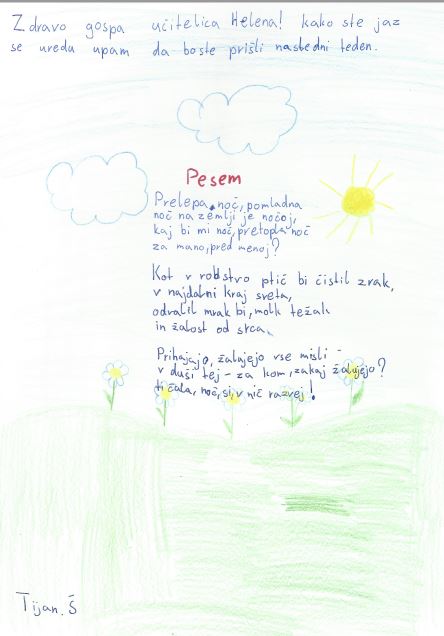 Zdravo gospa učitelica Helena! kako ste jaz
se uredu upam da boste prišli nasledni teden.
Pesem
Prelepa noč, pomladna
noč na zemlji je nocoj,
kaj bi mi noč, pretopla noč
za mano, pred menoj?
Kot v robstvo ptič bi čistil zrak,
v najdalni kraj sveta,
odvalil mrak bi, molk težak
in žalost od srca.
Prihajajo, žalujejo vse misli -
v duši tej - za kom, zakaj žalujejo?
ti čala, noč, si, v nič razvej!
Tijan. Š